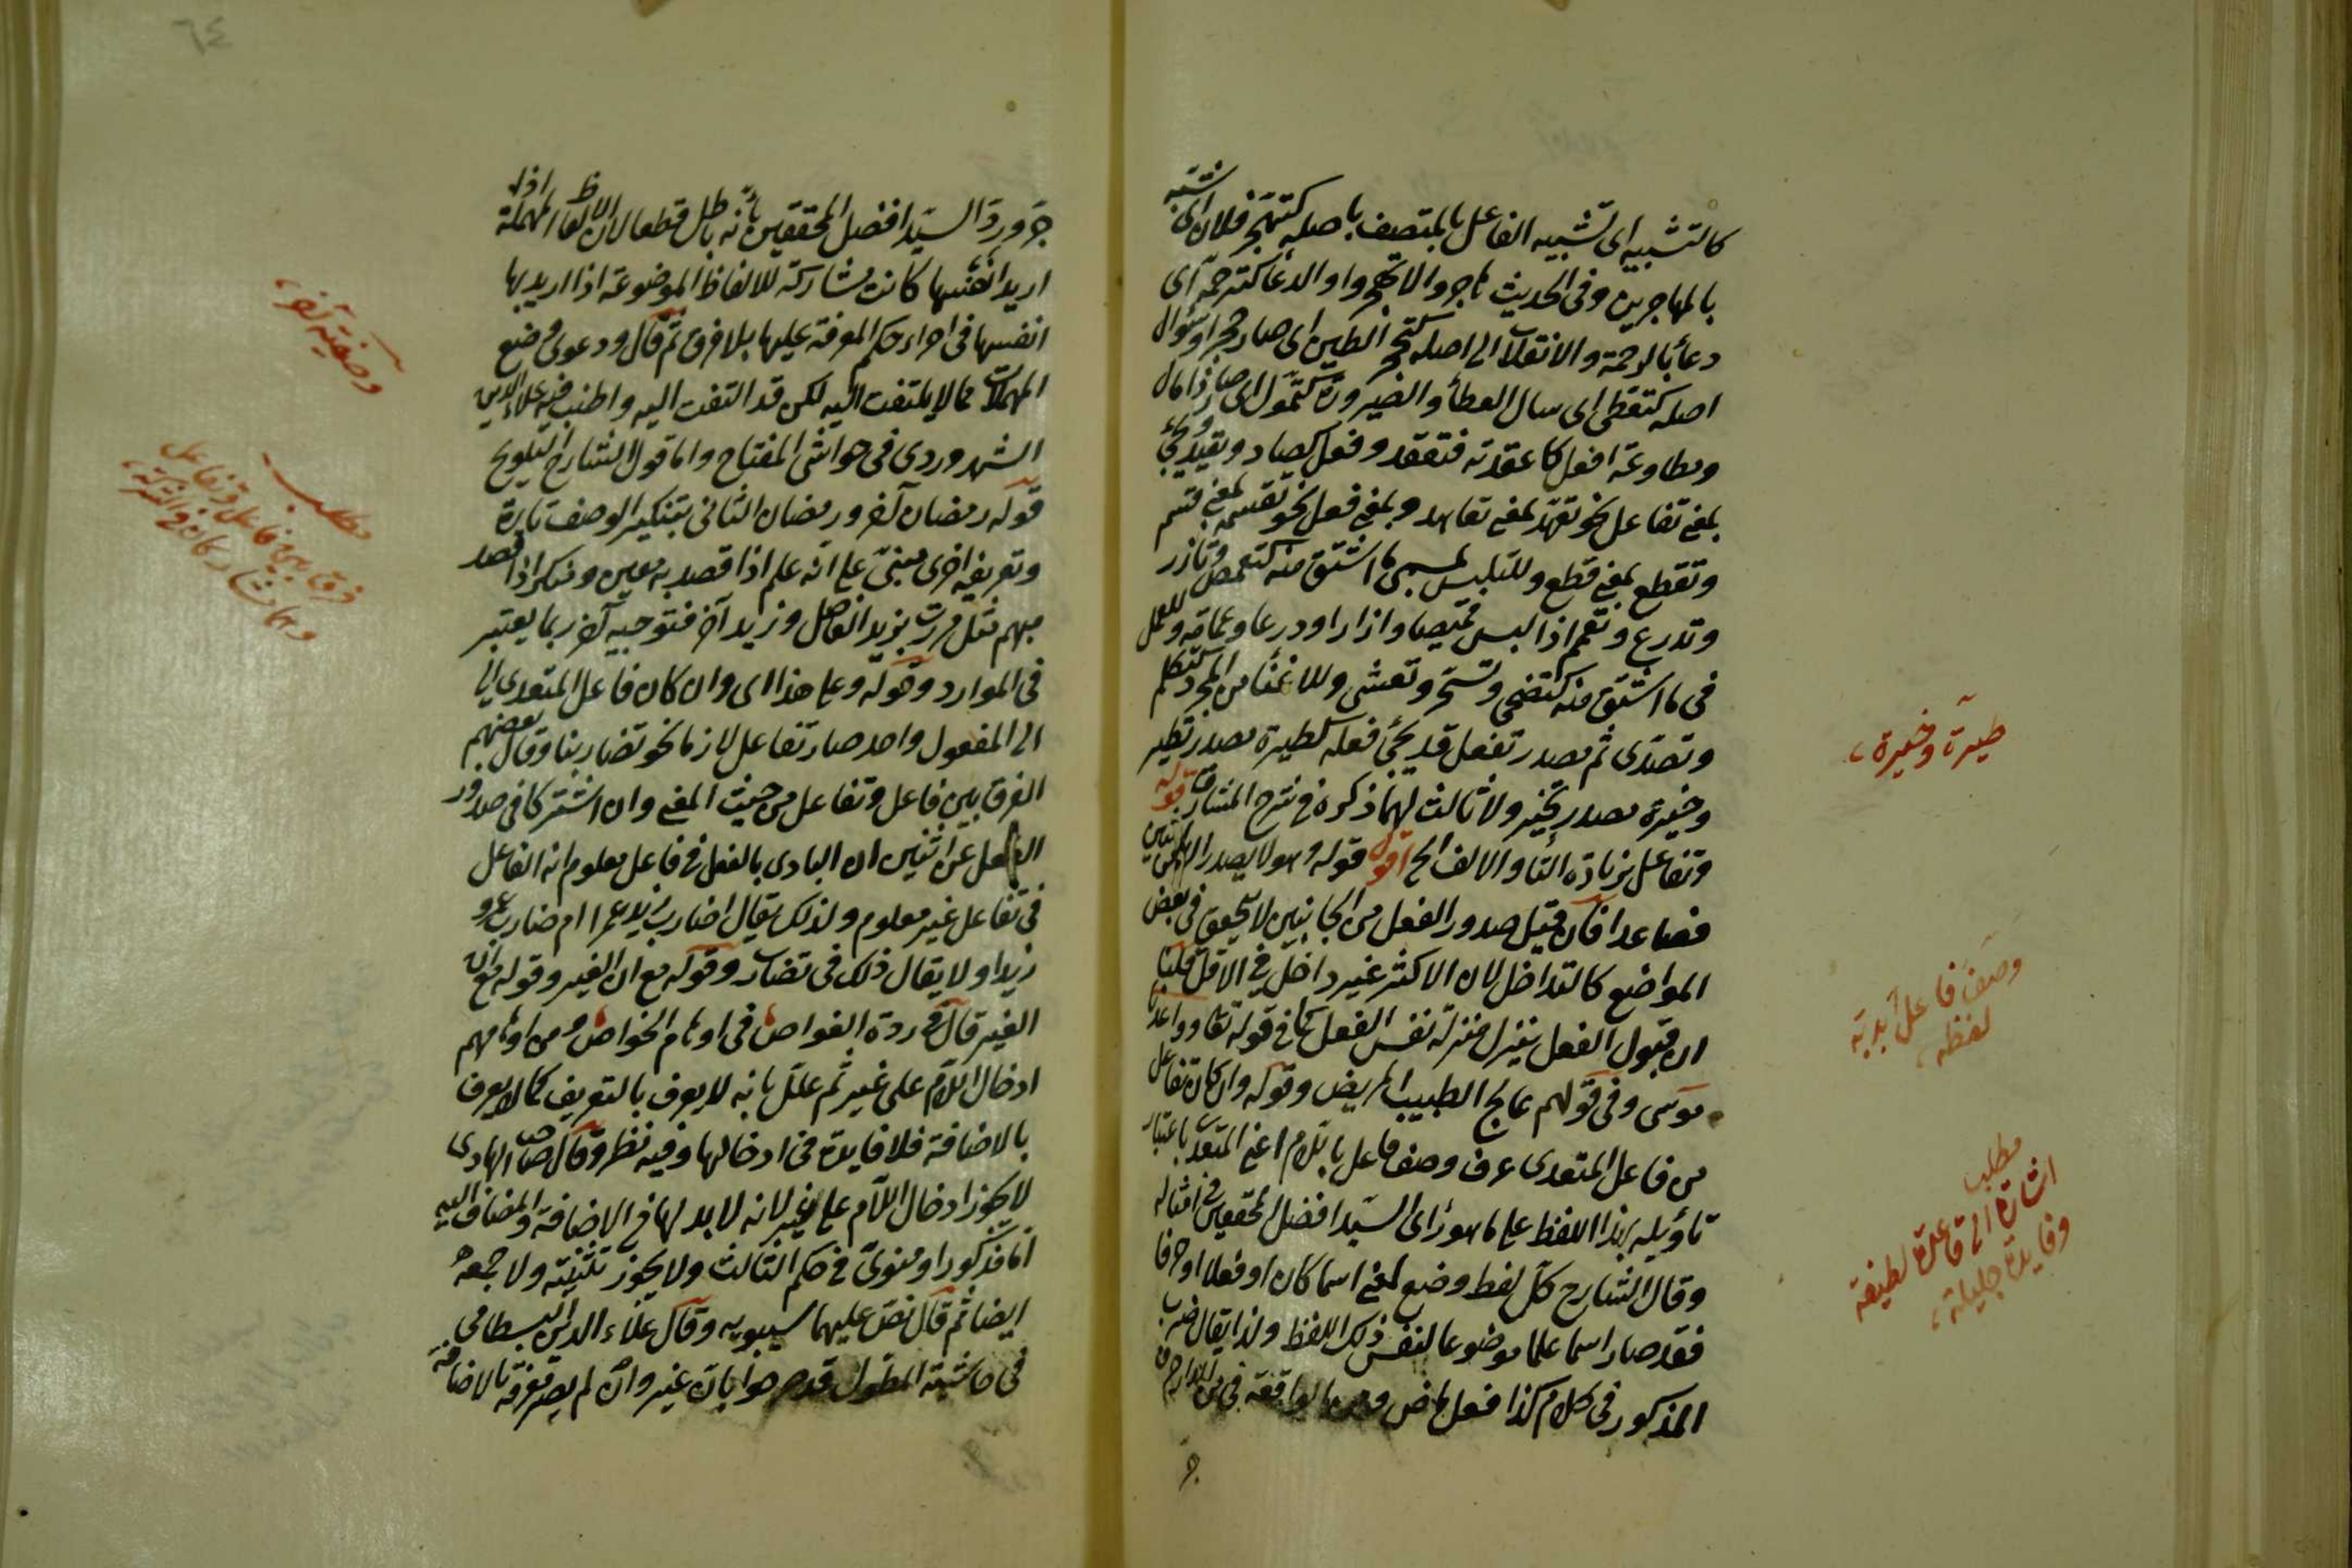 كالتشبيه اى تشبيه الفاعل بالمتصف باصله كتهجر فلان اى تشبه
بالمهاجرين وفى الحديث هاجروا ولا تهجروا والدعا كترحم اى
دعا بالرحمة والانقلاب الى اصله كتحجر الطين اى صار حجرا وسؤال
اصله كتعطى اى سال العطأ والصيرورة كتمول اى صار ذا مال
ومطاوعة افعل كاعقدته فتعقد وفعل كصاد وتصيد ويجئ
بمعنى تفاعل نحو تعهد بمعنى تعاهد وبمعنى فعل نحو تقسم بمعنى قسم
وتقطع بمعنى قطع وللتلبس بمسمى ما اشتق منه كتقمص وتازر
وتدرع وتعمم اذا لبس قميصا وازارا ودرعا وعمامة وللعمل
فى ما اشتق منه كتضحى وتسحر وتعشى وللاغناء من المجرد كتكلم
وتصدى ثم مصدر تفعل قد يجئ فعله كطيرة مصدر تطير
وخيرة مصدر تخير ولا ثالث لهما ذكره فى شرح المشارق قوله
وتفاعل بزيادة التا والالف الخ اقول قوله وهو لا يصدر الا من اثنين
فصاعدا فان قيل صدور الفعل من الجانبين لا يتحقق فى بعض
المواضع كالتداخل لان الاكثر غير داخل فى الاقل قلنا
ان قبول الفعل ينزل منزلة نفس الفعل كما فى قوله تعا وواعدنا
موسى وفى قولهم عالج الطبيب المريض وقوله وان كان تفاعل
من فاعل المتعدى عرف وصف فاعل باللام اعنى المتعدى باعتبار
تأويله بهذا اللفظ على ما هو رأى السيد افضل المحققين فى امثاله
وقال الشارح كل لفظ وضع لمعنى اسما كان او فعلا او حرفا
فقد صار اسما علما موضوعا لنفس ذلك اللفظ ولذا يقال ضرب
المذكور فى كلام كذا فعل ماض ومن الواقعة فى من الدار حرف
جر
طيرة وخيرة
وصف فاعل بديته
لفظه
مطلب
اشارة الى قاعدة لطيفة
وفايدة جليلة
٦٤
جر ورد السيد افضل المحققين بأنه باطل قطعا لان الالفاظ المهملة اذا
اريد انفسها كانت مشاركة للالفاظ الموضوعة اذا اريد بها
انفسها فى اجراء حكم المعرفة عليها بلا فرق ثم قال ودعوى وضع
المهملات مما لا يلتفت اليه لكن قد التفت اليه واطنب فيه علاء الدين
الشهروردى فى حواشى المفتاح واما قول الشارح التلويح
قوله رمضان آخر ورمضان الثانى بتنكير الوصف تارة
وتعريفه اخرى مبنى على انه علم اذا قصد به معين ومنكر اذا قصد
مبهم مثل مررت بزيد الفاضل وزيد آخر فتوجيه آخر ربما يعتبر
فى الموارد وقوله وعلى هذا اى وان كان فاعل المتعدى الى
الى المفعول واحد صار تفاعل لازما نحو تضاربنا وقال بعضهم
الفرق بين فاعل وتفاعل من حيث المعنى وان اشتركا فى صدور
الفعل عن اثنين ان البادى بالفعل فى فاعل معلوم انه الفاعل
فى تفاعل غير معلوم ولذلك يقال اضارب زيد عمرا ام ضارب عمرو
زيدا ولا يقال ذلك فى تضارب وقوله مع ان الغير وقوله مع ان
الغير قال فى درة الغواص فى اوهام الخواص ومن اوهامهم
ادخال اللام على غير ثم علل بانه لا يعرف بالتعريف كما لا يعرف
بالاضافة فلا فايدة فى ادخالها وفيه نظر وقال صاحب الهادى
لا يجوز ادخال اللام على غير لانه لا بد لها فى الاضافة والمضاف اليه
اما مذكور او منوى فى حكم الثالث ولا يجوز تثنيته ولا جمعه
ايضا ثم قال نص عليهما سيبويه وقال علاء الدين البسطامى
فى حاشية المطول قد صرحوا بان غير وان لم يصر معرفة بالاضافة
وصفية آخر
مطلب
فرق بين فاعل وتفاعل
وهما مشاركان فى الشركة